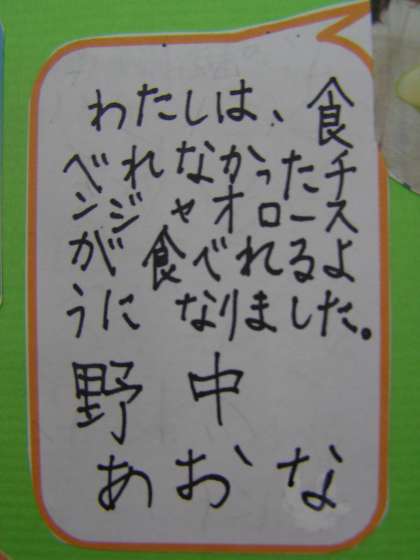 わたしは、食
べれなかったチ
ンジャオロース
が食べれるよ
うになりました。
野中
あおな